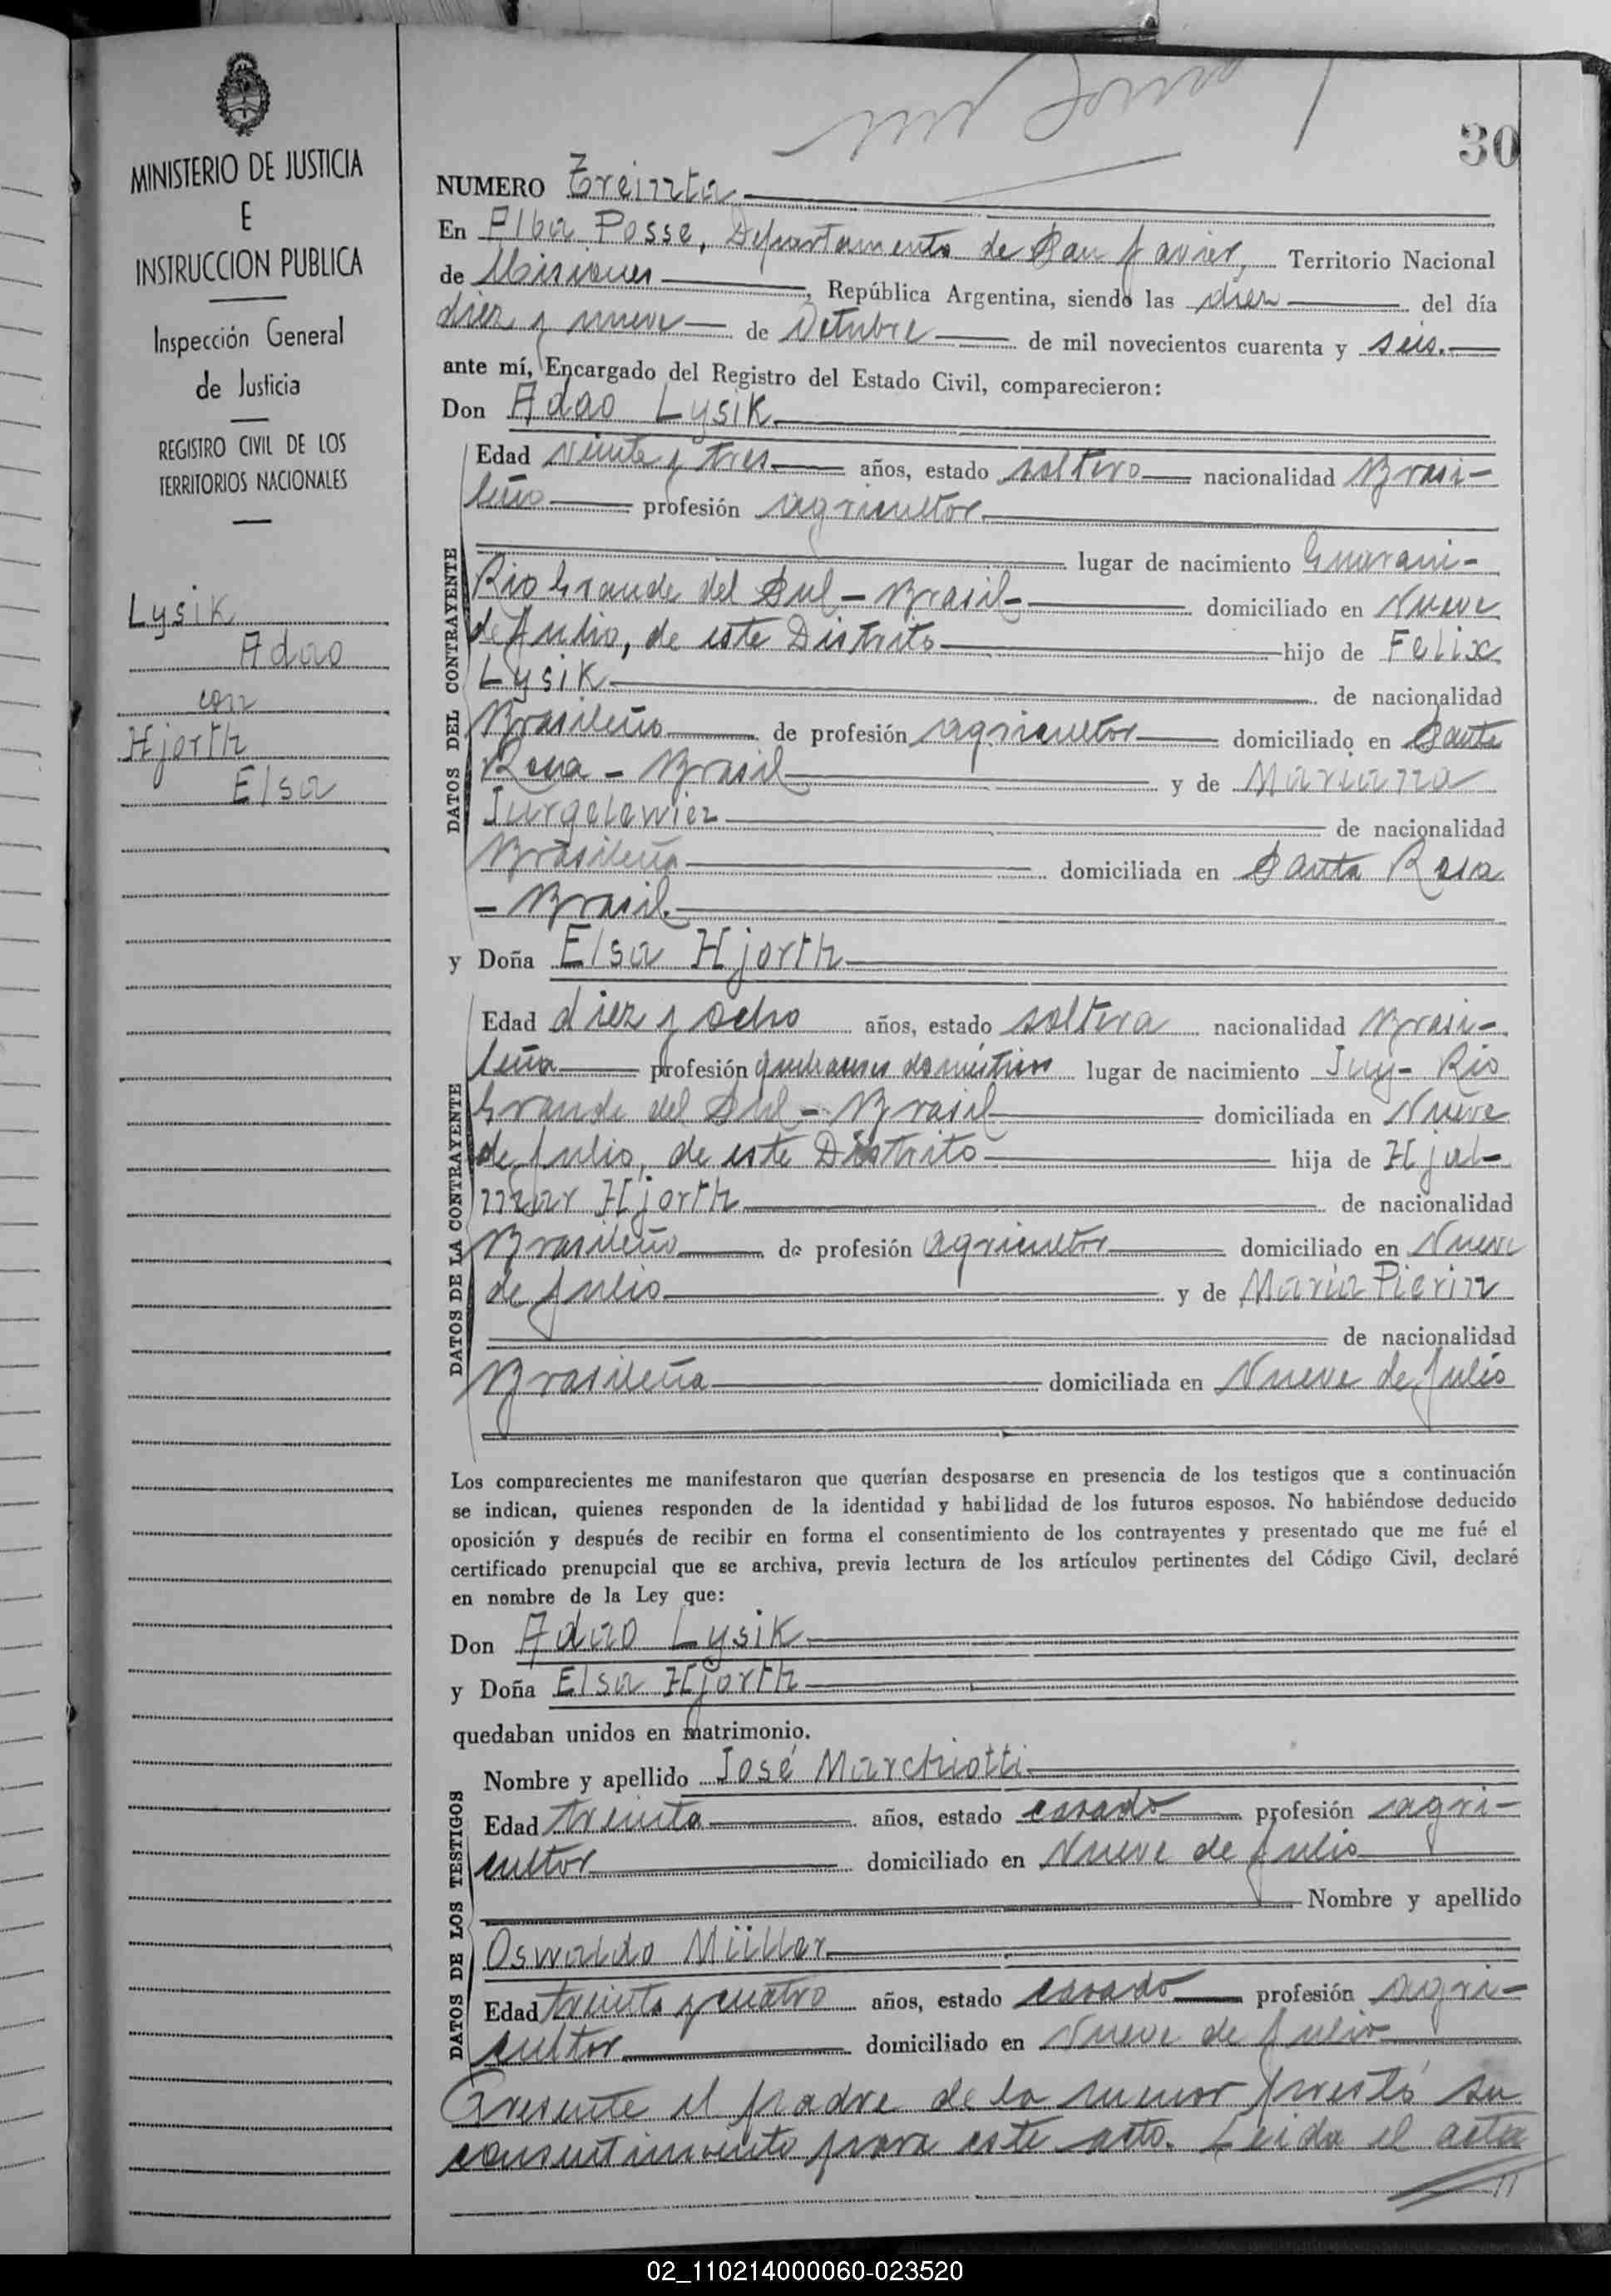 30
MINISTERIO DE JUSTICIA
E
INSTRUCCION PUBLICA
Inspección General
de Justicia
REGISTRO CIVIL DE LOS
TERRITORIOS NACIONALES
Lysik
Adao
con
Hjorth
Elsa
NUMERO Treinta
En Alba Posse, Departamento de San Javier, Territorio Nacional
de Misiones, República Argentina, siendo las diez del día
diez y nueve de Octubre de mil novecientos cuarenta y seis.
ante mí, Encargado del Registro del Estado Civil, comparecieron:
Don Adao Lysik
DATOS DEL CONTRAYENTE
Edad veinte y tres años, estado soltero nacionalidad Brasi-
leño profesión agricultor.
lugar de nacimiento Guarani-
Rio Grande del Sul - Brasil- domiciliado en Nueve
de Julio, de este Distrito hijo de Felix
Lysik de nacionalidad
Brasileño de profesión agricultor domiciliado en Santa
Rosa - Brasil y de Marianna
Jurgelewiez de nacionalidad
Brasileña domiciliada en Santa Rosa
- Brasil.
y Doña Elsa Hjorth
DATOS DE LA CONTRAYENTE
Edad diez y ocho años, estado soltera nacionalidad Brasi-
leña profesión quehaceres domésticos lugar de nacimiento Juy- Rio
Grande del Sul - Brasil domiciliada en Nueve
de Julio, de este Distrito hija de Hjal-
mar Hjorth de nacionalidad
Brasileño de profesión agricultor domiciliado en Nueve
de Julio y de Maria Pierin
de nacionalidad
Brasileña domiciliada en Nueve de Julio
Los comparecientes me manifestaron que querían desposarse en presencia de los testigos que a continuación
se indican, quienes responden de la identidad y habilidad de los futuros esposos. No habiéndose deducido
oposición y después de recibir en forma el consentimiento de los contrayentes y presentado que me fué el
certificado prenupcial que se archiva, previa lectura de los artículos pertinentes del Código Civil, declaré
en nombre de la Ley que:
Don Adao Lysik
y Doña Elsa Hjorth
quedaban unidos en matrimonio.
DATOS DE LOS TESTIGOS
Nombre y apellido José Marchiotti
Edad treinta años, estado casado profesión agri-
cultor domiciliado en Nueve de Julio
Nombre y apellido
Oswaldo Müller
Edad treinta y cuatro años, estado casado profesión agri-
cultor domiciliado en Nueve de Julio
Presente el padre de la menor prestó su
consentimiento para este acto. Leida el acta
02_110214000060-023520